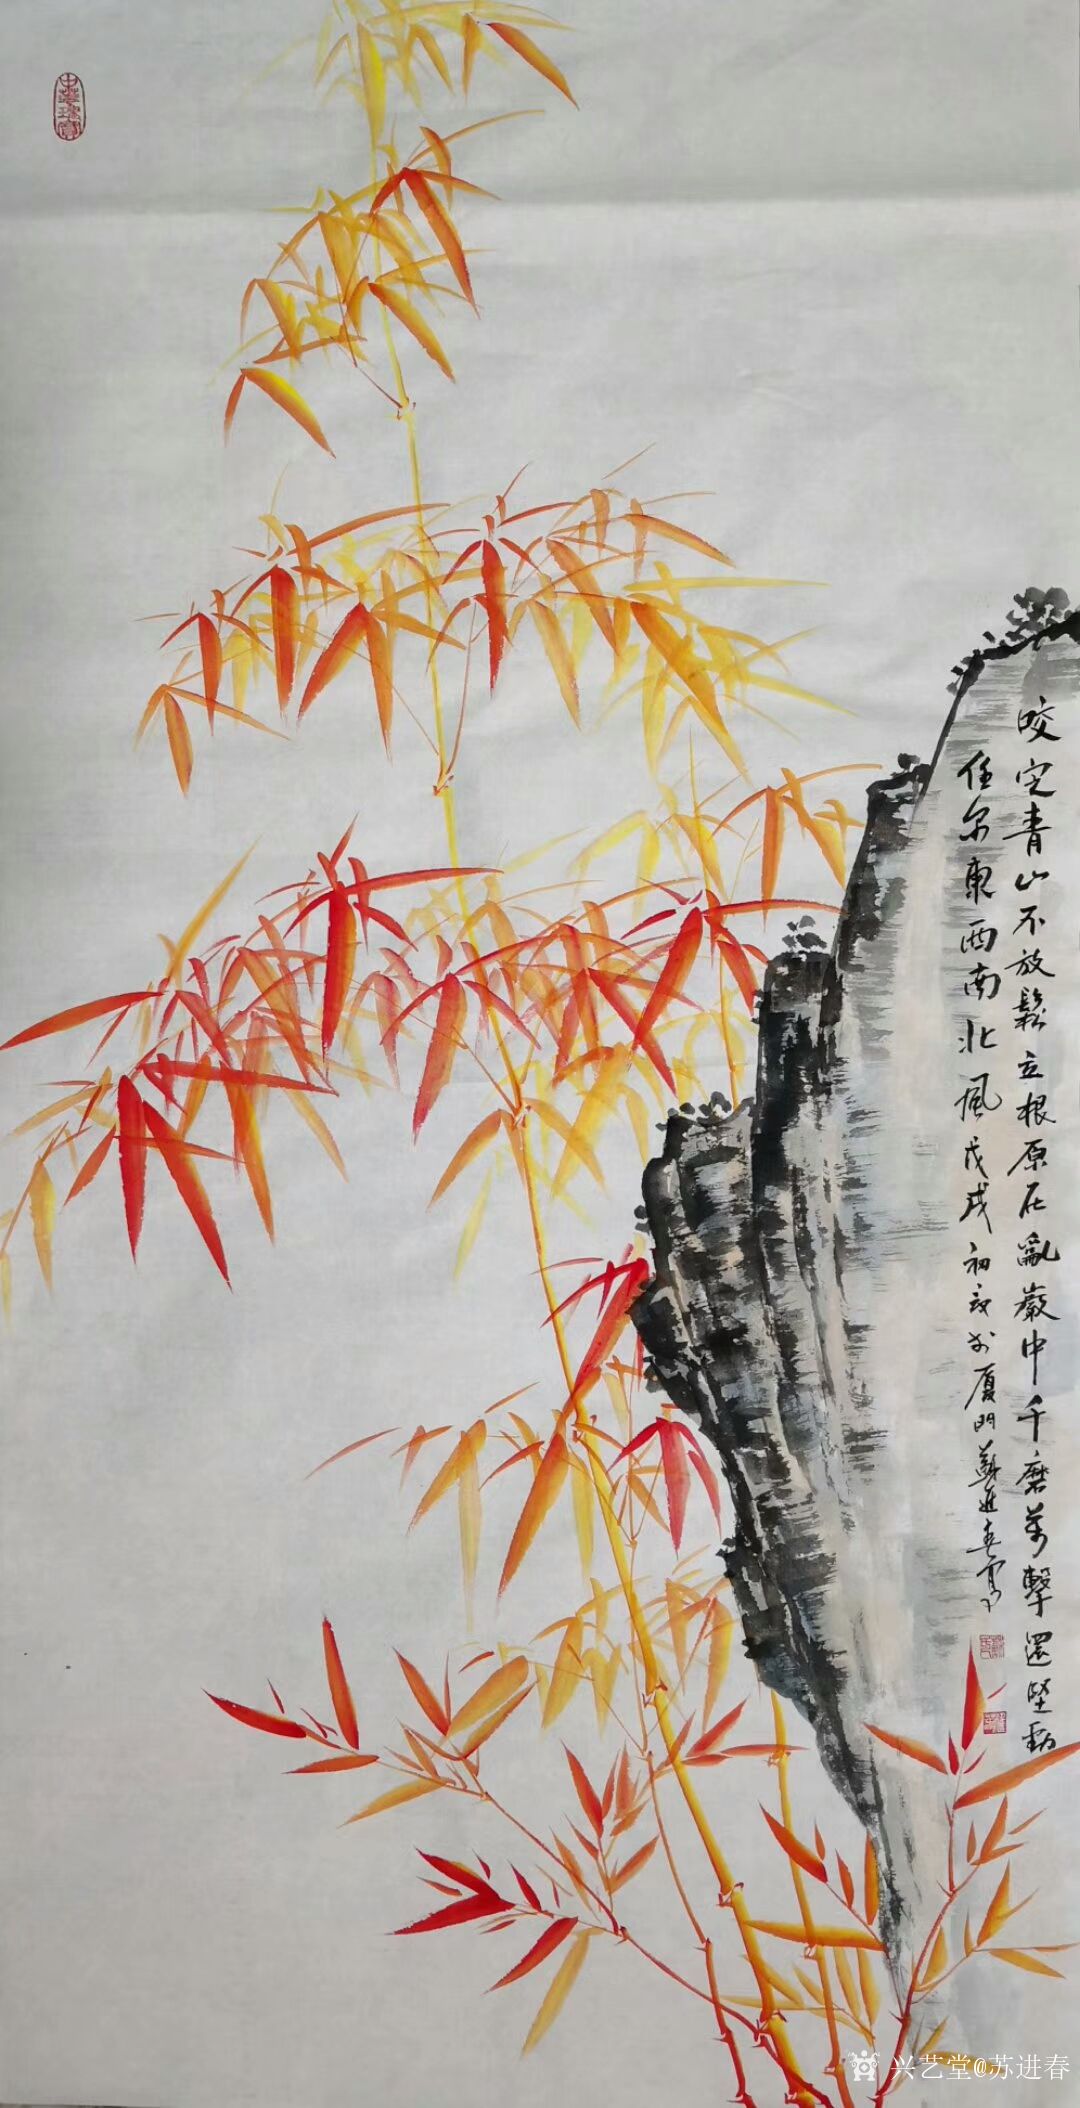 中華瑰寶
咬定青山不放鬆立根原在亂巖中千磨萬擊還堅勁
任尔東西南北風戊戌初於厦門蘇進春寫
兴艺堂@苏进春